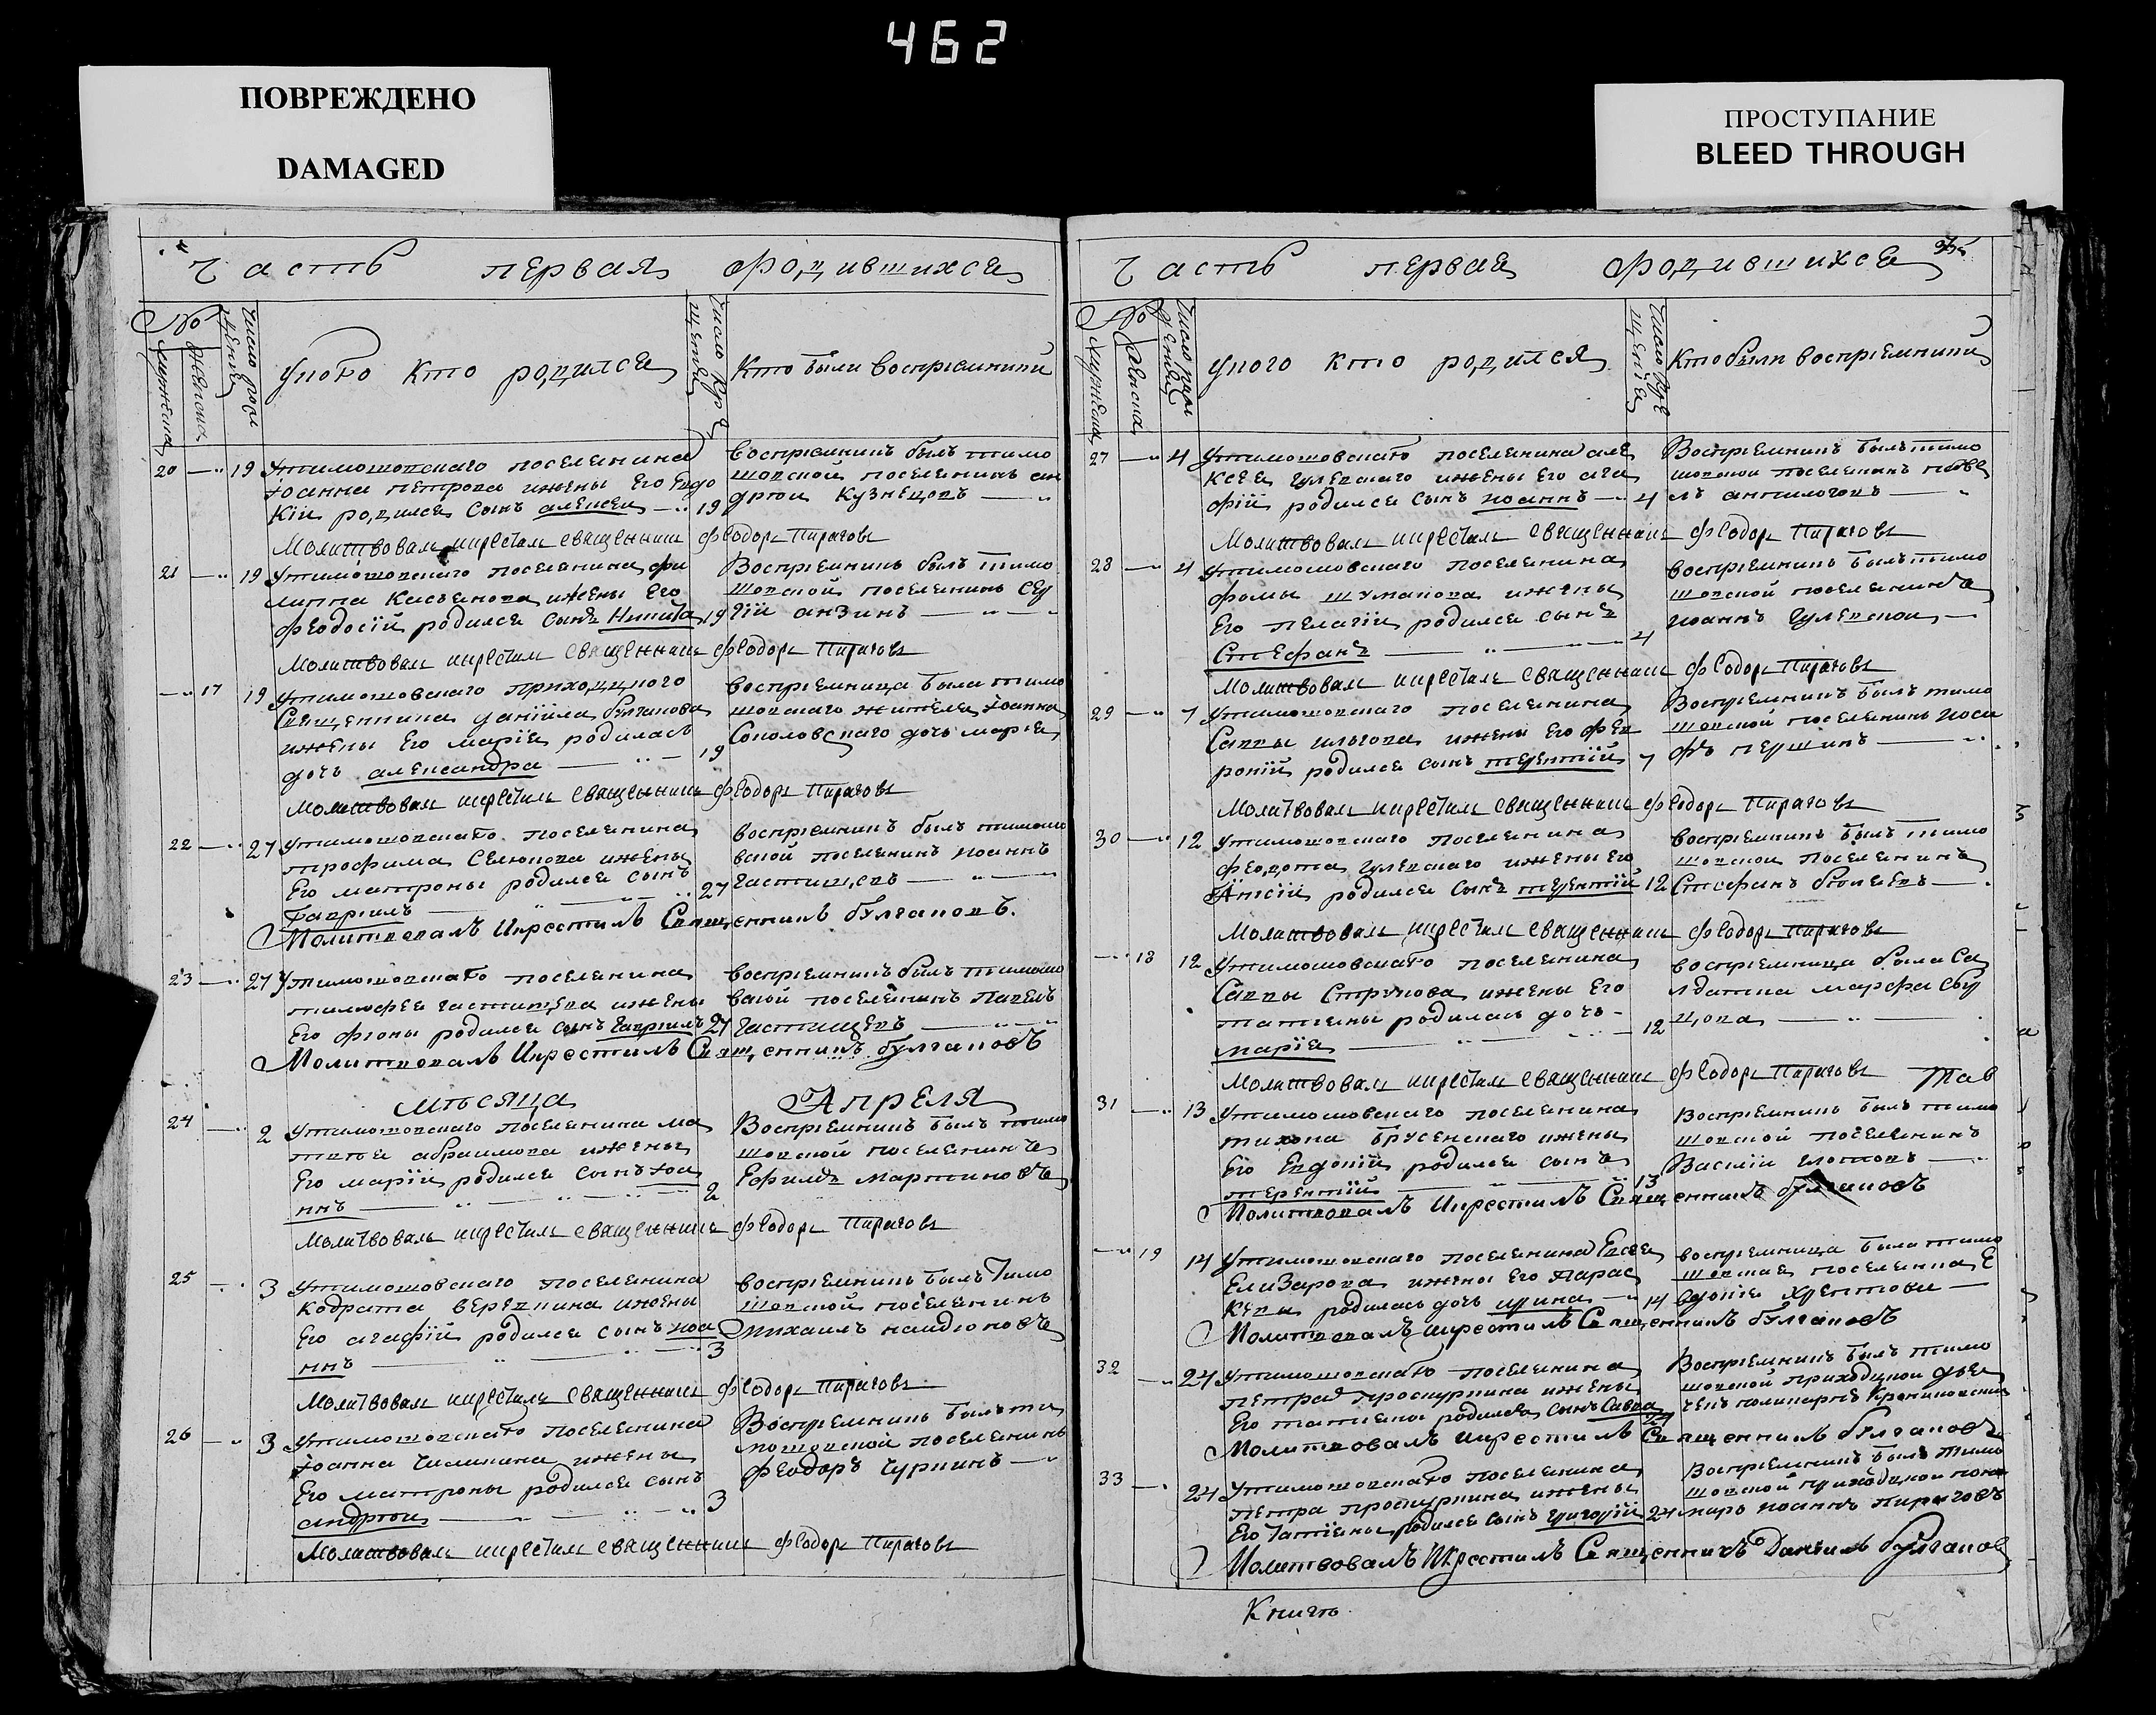 462
ПОВРЕЖДЕНО
DAMAGED
ПРОСТУПАНИЕ
BLEED THROUGH
Часть первая ородившихся
№
мужеска
женска
Число рож
дений
Укого кто родился
Число кре
щения
Кто были восприемники
20 19 Утимошовскаго поселенина
Иоанна Петрова ижены Его Евдо
кии родился сынъ алексей 19
восприемникъ былъ тимо
шовской поселенинъ ан
дрей Кузнецовъ
Молитвовалъ икрестилъ священникъ Феодоръ Пираговъ
21 19 Утимошовскаго поселенина фи
липпа Касьянова ижены Его
Феодосіи родился сынъ Никита 19
Восприемникъ былъ тимо
шовской поселенинъ сер
гій анзинъ
Молитвовалъ икрестилъ священникъ Феодоръ Пираговъ
17 19 Утимошовскаго приходцкого
Священника даніила булгакова
ижены Его маріи родилась
дочь александра 19
восприемница была тимо
шовскаго жителя Иоанна
Соколовскаго дочь марія
Молитвовалъ икрестилъ священникъ Феодоръ Пираговъ
22 27 Утимошовскаго поселенина
трофима Селюкова ижены
Его матроны родился сынъ
Гавриилъ 27
восприемникъ былъ тимошо
вской поселенинъ Иоаннъ
Частищевъ
Молитвовалъ Икрестилъ Священникъ булгаковъ.
23 27 Утимошовскаго поселенина
тимофея частищева ижены
Его фіоны родился сынъ Гавриилъ 27
восприемникъ былъ тимошо
вской поселенинъ Павелъ
Частищевъ
Молитвовалъ Икрестилъ Священникъ булгаковъ
Мѣсяца Апреля
24 2 Утимошовскаго поселенина ма
твея абрамова ижены
Его маріи родился сынъ Иоа
ннъ 2
Восприемникъ былъ тимо
шовской поселенинъ
Ефимъ мартиновъ
Молитвовалъ икрестилъ священникъ Феодоръ Пираговъ
25 3 Утимошовскаго поселенина
Кодрата веревкина ижены
Его агафіи родился сынъ иоа
ннъ 3
восприемникъ былъ Тимо
шовской поселенинъ
михаилъ наидионовъ
Молитвовалъ икрестилъ священникъ Феодоръ Пираговъ
26 3 Утимошовскаго поселенина
Иоанна Чиликина ижены
Его матроны родился сынъ
андрей 3
Восприемникъ былъ ти
мошовской поселенинъ
Феодоръ Чуркинъ
Молитвовалъ икрестилъ священникъ Феодоръ Пираговъ
Часть первая ородившихся
№
мужеска
женска
Число рож
дений
укого кто родился
Число кре
щения
Кто были восприемники
27 4 Утимошовскаго поселенина але
ксея гулевскаго ижены Его ага
фіи родился сынъ иоаннъ 4
Восприемникъ былъ тимо
шовской поселенинъ паве
лъ антилоговъ
Молитвовалъ икрестилъ священникъ Феодоръ Пираговъ
28 4 Утимошовскаго поселенина
фомы шумакова ижены
Его пелагіи родился сынъ
Стефанъ 4
восприемникъ былъ тимо
шовской поселенинъ
иоаннъ Гулевской
Молитвовалъ икрестилъ священникъ Феодоръ Пираговъ
29 7 Утимошовскаго поселенина
Саввы ильгова ижены Его фев
роніи родился сынъ терентій 7
Восприемникъ былъ тимо
шовской поселенинъ иоси
фъ першинъ
Молитвовалъ икрестилъ священникъ Феодоръ Пираговъ
30 12 Утимошовскаго поселенина
феодота гулевскаго ижены Его
родился сынъ терентій 12
восприемникъ былъ тимо
шовской поселенинъ
Стефанъ
Молитвовалъ икрестилъ священникъ Феодоръ Пираговъ
18 12 Утимошовскаго поселенина
Саввы Струкова ижены Его
татіаны родилась дочь
марія 12
восприемница была Са
лдатка марфа сбу
цова
Молитвовалъ икрестилъ священникъ Феодоръ Пираговъ
31 13 Утимошовскаго поселенина
тихона брусенскаго ижены
Его Евдокіи родился сынъ
терентій 13
Восприемникъ былъ тимо
шовской поселенинъ
Василій изотовъ
Молитвовалъ Икрестилъ Священникъ булгаковъ
19 14 Утимошовскаго поселенина Евсея
Елизарова ижены Его Парас
кевы родилась дочь ирина 14
восприемница была тимо
шовская поселенка Е
вдокія Хрептова
Молитвовалъ икрестилъ Священникъ булгаковъ
32 24 Утимошовскаго поселенина
петра проскурнина ижены
Его татіаны родился сынъ Савва 24
Восприемникъ былъ тимо
шовской приходцкой дья
чекъ поликарпъ
Молитвовалъ икрестилъ Священникъ булгаковъ
33 24 Утимошовскаго поселенина
петра проскурнина ижены
Его Татіаны родился сынъ григорій 24
Восприемникъ былъ тимо
шовской приходцкой поно
марь иоаннъ пираговъ
Молитвовалъ Икрестилъ Священникъ Даніилъ булгаковъ
Книгъ